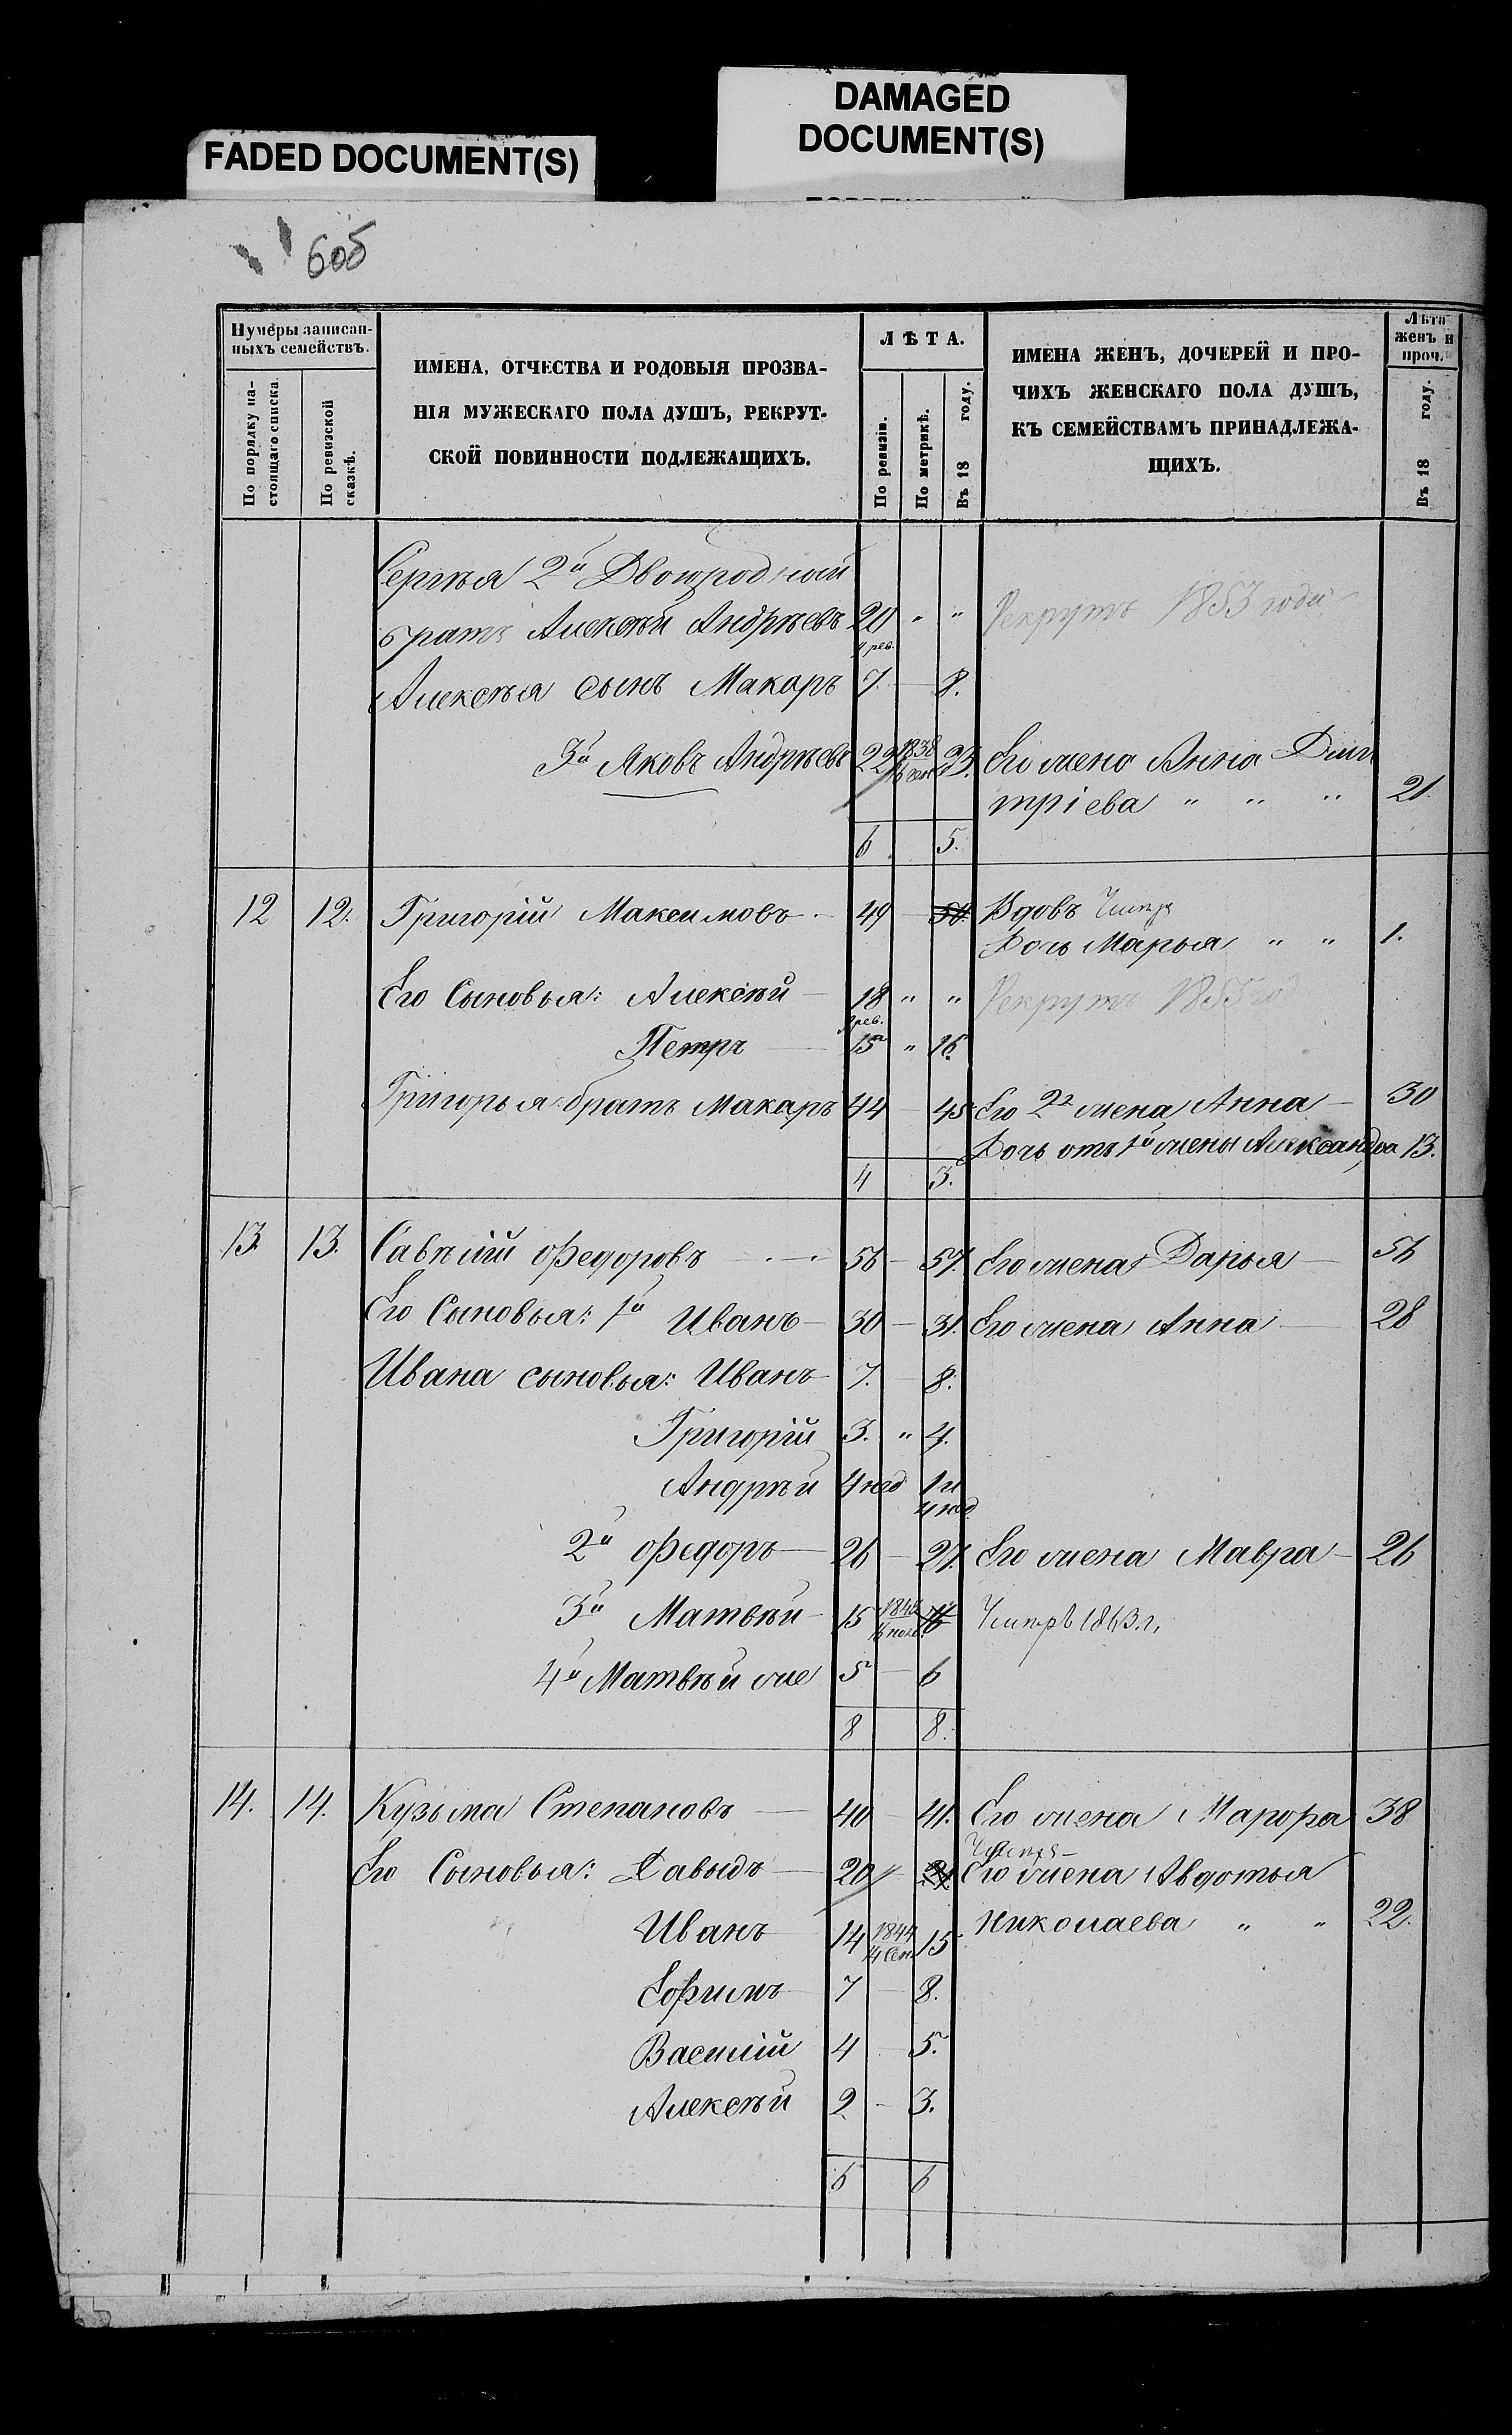 DAMAGED
DOCUMENT(S)
FADED DOCUMENT(S)
60б
Нумеры записан-
ныхъ семействъ.
По порядку на-
стоящаго списка.
По ревизской
сказкѣ.
ИМЕНА, ОТЧЕСТВА И РОДОВЫЯ ПРОЗВА-
НІЯ МУЖЕСКАГО ПОЛА ДУШЪ, РЕКРУТ-
СКОЙ ПОВИННОСТИ ПОДЛЕЖАЩИХЪ.
ЛѢТА.
По ревизіи.
По метрикѣ.
Въ 18 году.
ИМЕНА ЖЕНЪ, ДОЧЕРЕЙ И ПРО-
ЧИХЪ ЖЕНСКАГО ПОЛА ДУШЪ,
КЪ СЕМЕЙСТВАМЪ ПРИНАДЛЕЖА-
ЩИХЪ.
Лѣта
женъ и
проч.
Въ 18 году.
Сергѣя 2й Двоюродный
братъ Алексѣй Андрѣевъ 20 " " Рекрутъ 1853 года
9 рев.
Алексѣя сынъ Макаръ 7. 8.
3й Яковъ Андрѣевъ 22 1838 23. Его жена Анна Дми
тріева " " " 21.
6 5.
12 12. Григорій Максимовъ 49 50 Вдовъ Умеръ
Дочь Марья " " 1.
Его Сыновья: Алексѣй 18 " " Рекрутъ 1855 год
9 рев.
Петръ 15 " 16
Григорья братъ Макаръ 44 45 Его 2я жена Анна 30
Дочь отъ 1й жены Александра 13.
4 3.
13. 13. Савѣлій Федоровъ 56 57. Его жена Дарья 56
Его Сыновья: 1й Иванъ 30 31. Его жена Анна 28
Ивана сыновья: Иванъ 7. 8.
Григорій 3. " 4.
Андрѣй 4 нед 1 и
4 нед
2й Федоръ 26 27. Его жена Мавра 26
3й Матвѣй 15 16 Умеръ 1863 г.
4й Матвѣй же 5 6
8 8.
14. 14. Кузьма Степановъ 40 41. Его жена Марфа 38
Умеръ
Его Сыновья: Давыдъ 20 21 Его жена Авдотья
Николаева " " 22.
Иванъ 14 1844 15
14 Сен.
Ефимъ 7 8.
Василій 4 5.
Алексѣй 2 3.
6 6